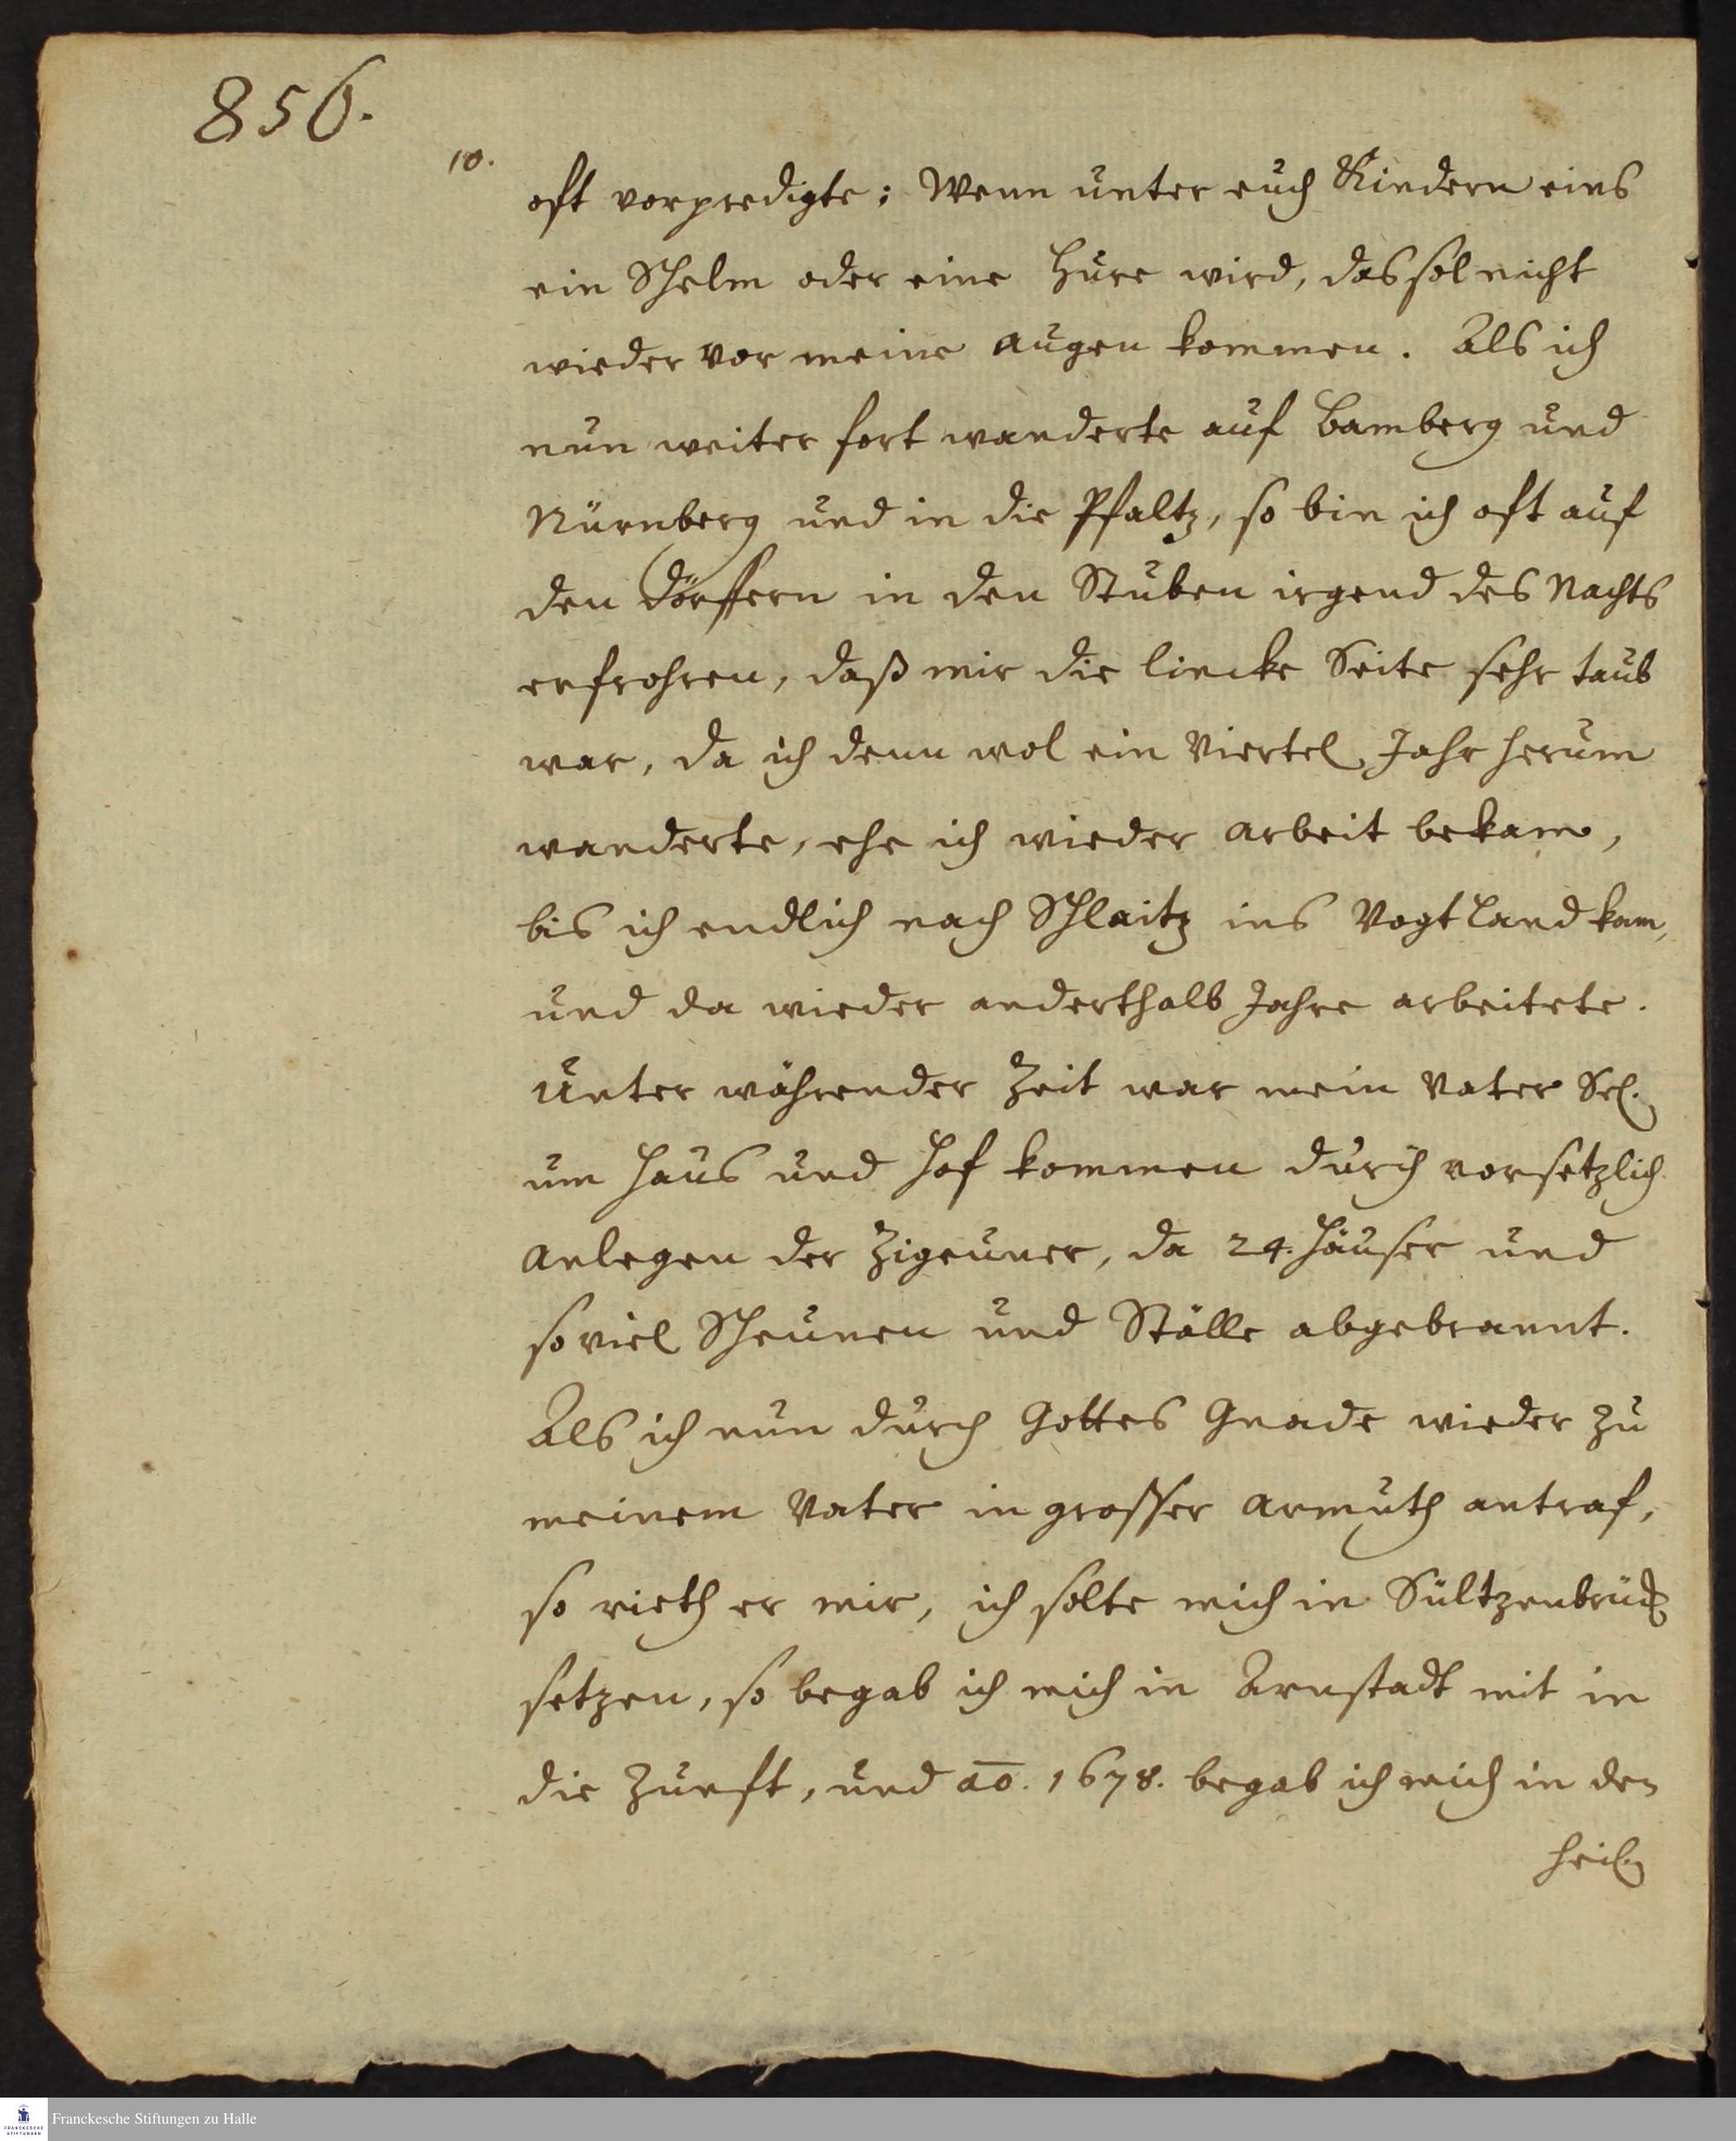 856.
10.
oft vorpredigte: Wenn unter euch Kindern eins
ein Schelm oder eine Hure wird, das sol nicht
wieder vor meine Augen kommen. Als ich
nun weiter fort wanderte auf Bamberg und
Nürnberg und in die Pfaltz, so bin ich oft auf
den Dörffern in den Stuben irgend des Nachts
erfrohren, daß mir die lincke Seite sehr taub
war, da ich denn wol ein Viertel Jahr herum
wanderte, ehe ich wieder Arbeit bekam,
bis ich endlich nach Schlaitz ins Vogtland kam,
und da wieder anderthalb Jahre arbeitete.
Unter währender Zeit war mein Vater Sel.
um Haus und Hof kommen durch vorsetzlich
Anlegen der Zigeuner, da 24. Häuser und
so viel Scheunen und Ställe abgebrannt.
Als ich nun durch Gottes Gnade wieder zu
meinem Vater in grosser Armuth antraf,
so rieth er mir, ich solte mich in Sültzenbrück
setzen, so begab ich mich in Arnstadt mit in
die Zunft, und ao. 1678. begab ich mich in den
heil.
Franckesche Stiftungen zu Halle
FRANCKESCHE
STIFTUNGEN